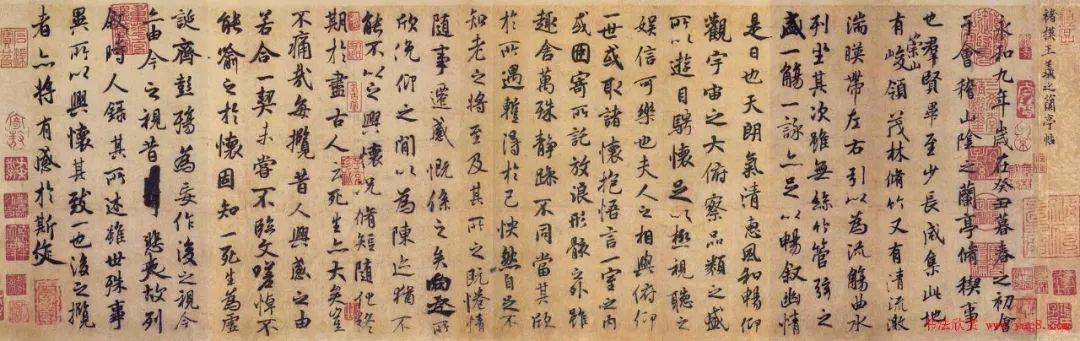 褚摸王羲之蘭亭帖
永和九年歲在癸丑暮春之初會
于會稽山陰之蘭亭脩稧事
也羣賢畢至少長咸集此地
有崇山峻領茂林脩竹又有清流激
湍暎帶左右引以為流觴曲水
列坐其次雖無絲竹管弦之
盛一觴一詠亦足以暢叙幽情
是日也天朗氣清惠風和暢仰
觀宇宙之大俯察品類之盛
所以遊目騁懷足以極視聽之
娛信可樂也夫人之相與俯仰
一世或取諸懷抱悟言一室之內
或因寄所託放浪形骸之外雖
趣舍萬殊靜躁不同當其欣
於所遇暫得於己怏然自足不
知老之將至及其所之既惓情
隨事遷感慨係之矣向之所
欣俛仰之間以為陳迹猶不
能不以之興懷況脩短隨化終
期於盡古人云死生亦大矣豈
不痛哉每攬昔人興感之由
若合一契未嘗不臨文嗟悼不
能喻之於懷固知一死生為虛
誕齊彭殤為妄作後之視今
亦由今之視昔悲夫故列
敘時人錄其所述雖世殊事
異所以興懷其致一也後之攬
者亦將有感於斯文
书法欣赏
www.yac8.com